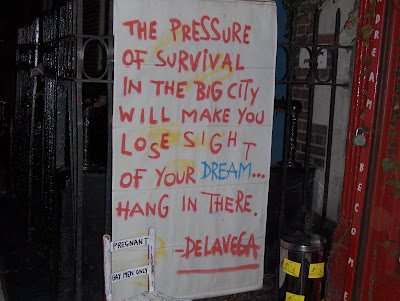 THE PRESSURE
OF SURVIVAL
IN THE BIG CITY
WILL MAKE YOU
LOSE SIGHT
OF YOUR DREAM...
HANG IN THERE.
-DELAVEGA
PREGNANT
GAY MEN ONLY
DREAM
BECOME